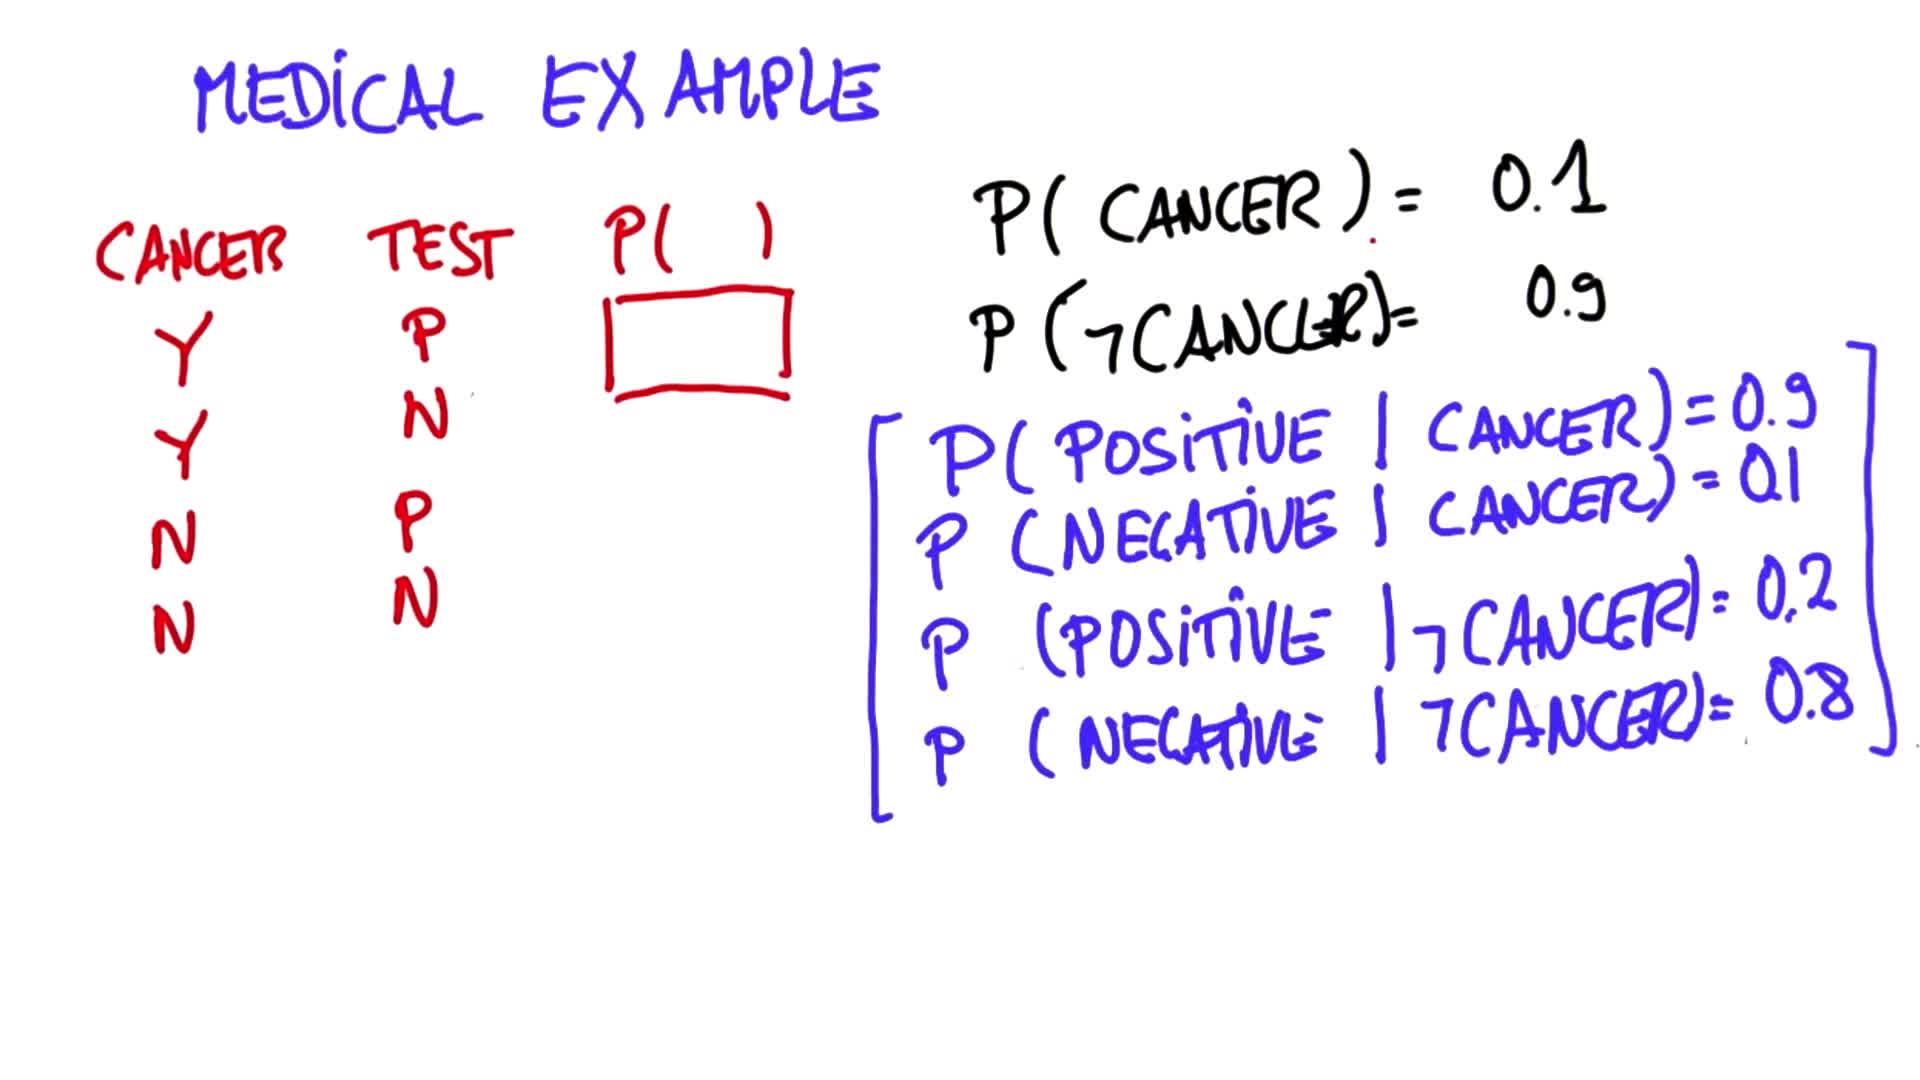 MEDICAL EXAMPLE
CANCER TEST P( )
Y P
Y N
N P
N N
P( CANCER ) = 0.1
P(¬CANCER)= 0.9
P( POSITIVE | CANCER) = 0.9
P (NEGATIVE | CANCER) = 0.1
P (POSITIVE | ¬CANCER)= 0.2
P (NEGATIVE | ¬CANCER)= 0.8